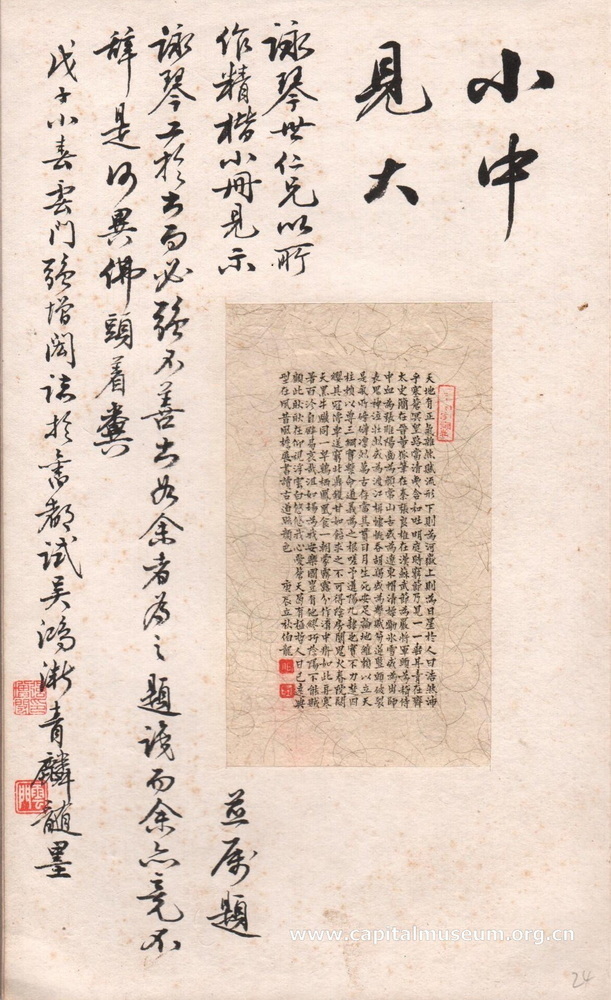 小中
見大
詠琴世仁兄以所
作精楷小冊見示
並属題
詠琴工於書而必強不善書如余者為之題識而余亦竟不
辭是何異佛頭着糞
戊子小春雲門張增閎誌於舊都試吳鴻漸青麟髓墨
天地有正氣雜然賦流形下則為河嶽上則為日星於人曰浩然沛
乎塞蒼冥皇路當清夷含和吐明庭時窮節乃見一一垂丹青在齊
太史簡在晉董狐筆在秦張良椎在漢蘇武節為嚴將軍頭為嵇侍
中血為張睢陽齒為顏常山舌或為遼東帽清操勵冰雪或為出師
表鬼神泣壯烈或為渡江楫慷慨吞胡羯或為擊賊笏逆豎頭破裂
是氣所磅礴凜烈萬古存當其貫日月生死安足論地維賴以立天
柱賴以尊三綱實繫命道義為之根嗟予遘陽九隸也實不力楚囚
纓其冠傳車送窮北鼎鑊甘如飴求之不可得陰房闃鬼火春院閟
天黑牛驥同一皁雞棲鳳凰食一朝蒙霧露分作溝中瘠如此再寒
暑百沴自辟易哀哉沮洳場為我安樂國豈有他繆巧陰陽不能賊
顧此耿耿在仰視浮雲白悠悠我心憂蒼天曷有極哲人日已遠典
型在夙昔風簷展書讀古道照顏色 庚辰立秋伯龍
雲門
www.capitalmuseum.org.cn
24